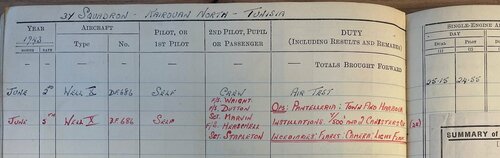 37 SQUADRON - KAIROUAN NORTH - TUNISIA
YEAR
1943
MONTH DATE
AIRCRAFT
Type No.
PILOT, OR
1ST PILOT
2ND PILOT, PUPIL
OR PASSENGER
DUTY
(INCLUDING RESULTS AND REMARKS)
SINGLE-ENGINE A
DAY
DUAL PILOT
(1) (2)
TOTALS BROUGHT FORWARD
25.15 24.55
JUNE 2ND WELL X DF.686 SELF CREW AIR TEST
F/S. WRIGHT
P/O. DUTTON OPS: PANTELLERIA: TOWN AND HARBOUR
JUNE 3RD WELL X DF.686 SELF SGT. MARVIN INSTALLATIONS. 7/500' AND 2 CANISTERS OF
F/O. HEADSHELL INCENDIARIES. FLARES. CAMERA. LIGHT FLAK. (28)
SGT. STAPLETON
SUMMARY of